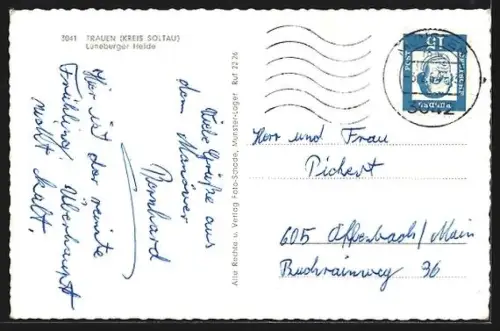 3041 TRAUEN (KREIS SOLTAU)
Lüneburger Heide
Viele Grüße aus
dem Manöver
Bernhard
Hier ist der reinste
Frühling. Überhaupt
nicht kalt.
Alle Rechte u. Verlag Foto-Schade, Munster-Lager Ruf 2276
15
3042
Herr und Frau
Pichert
605 Offenbach/Main
Buchrainweg 36